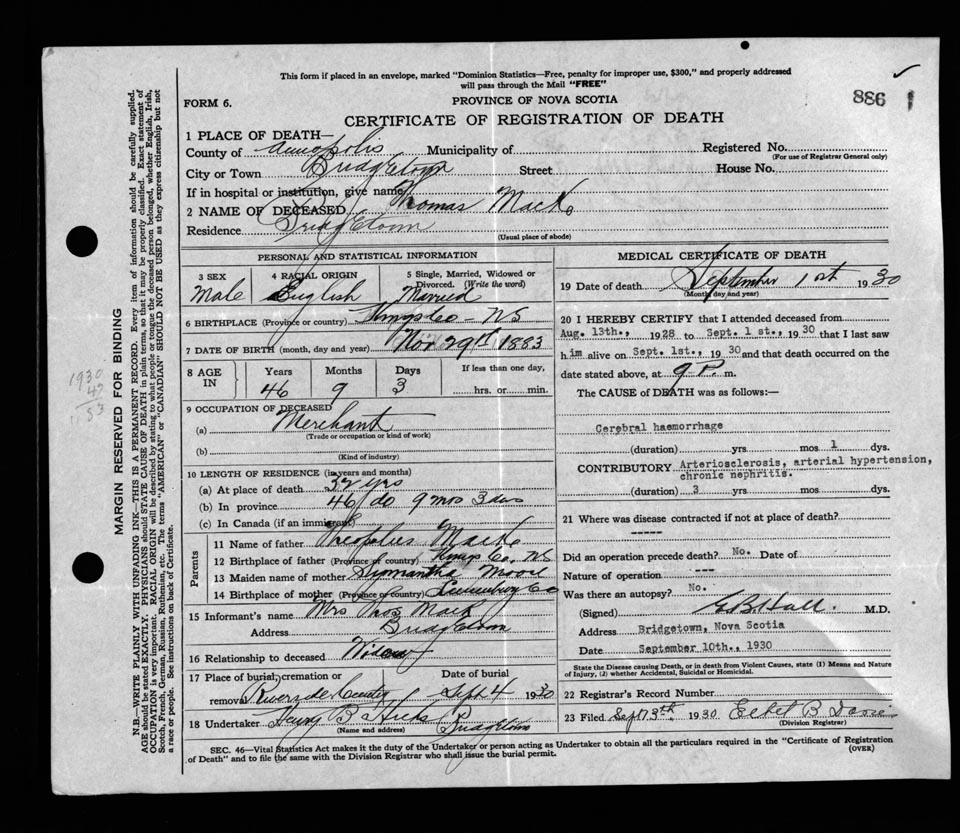 This form if placed in an envelope, marked "Dominion Statistics—Free, penalty for improper use, $300," and properly addressed
will pass through the Mail "FREE"
FORM 6.
PROVINCE OF NOVA SCOTIA
886
CERTIFICATE OF REGISTRATION OF DEATH
1 PLACE OF DEATH—
County of Annapolis Municipality of Registered No.
(For use of Registrar General only)
City or Town Bridgetown Street House No.
If in hospital or institution, give name
2 NAME OF DECEASED Thomas Mack
Residence Bridgetown
(Usual place of abode)
PERSONAL AND STATISTICAL INFORMATION
3 SEX 4 RACIAL ORIGIN 5 Single, Married, Widowed or
Divorced. (Write the word)
Male English Married
6 BIRTHPLACE (Province or country) Kings Co - NS
7 DATE OF BIRTH (month, day and year) Nov 29th 1883
8 AGE IN Years Months Days If less than one day,
46 9 3 hrs. or min.
9 OCCUPATION OF DECEASED
(a) Merchant
(Trade or occupation or kind of work)
(b)
(Kind of industry)
10 LENGTH OF RESIDENCE (in years and months)
(a) At place of death 32 yrs
(b) In province 46 do 9 mos 3 das
(c) In Canada (if an immigrant)
Parents
11 Name of father Mack
12 Birthplace of father (Province or country) Kings Co, NS
13 Maiden name of mother
14 Birthplace of mother (Province or country) Lunenburg Co
15 Informant's name Mrs Thos Mack
Address Bridgetown
16 Relationship to deceased Widow
17 Place of burial, cremation or Date of burial
removal Riverside Sept 4 1930
18 Undertaker Henry B Hicks Bridgetown
(Name and address)
MEDICAL CERTIFICATE OF DEATH
19 Date of death September 1st 1930
(Month, day and year)
20 I HEREBY CERTIFY that I attended deceased from
Aug. 13th., 1928 to Sept. 1 st., 1930 that I last saw
h.im alive on Sept. 1st., 1930 and that death occurred on the
date stated above, at 9 P. m.
The CAUSE of DEATH was as follows:—
Cerebral haemorrhage
(duration) yrs. mos 1 dys.
CONTRIBUTORY Arteriosclerosis, arterial hypertension,
chronic nephritis.
(duration) 3 yrs mos dys.
21 Where was disease contracted if not at place of death?
-----
Did an operation precede death? No. Date of
Nature of operation ---
Was there an autopsy? No.
(Signed) M.D.
Address Bridgetown, Nova Scotia
Date September 10th., 1930
State the Disease causing Death, or in death from Violent Causes, state (1) Means and Nature
of Injury, (2) whether Accidental, Suicidal or Homicidal.
22 Registrar's Record Number
23 Filed 1930
(Division Registrar)
SEC. 46—Vital Statistics Act makes it the duty of the Undertaker or person acting as Undertaker to obtain all the particulars required in the "Certificate of Registration
of Death" and to file the same with the Division Registrar who shall issue the burial permit.
(OVER)
MARGIN RESERVED FOR BINDING
N.B.—WRITE PLAINLY WITH UNFADING INK—THIS IS A PERMANENT RECORD. Every item of information should be carefully supplied.
AGE should be stated EXACTLY. PHYSICIANS should STATE CAUSE OF DEATH in plain terms, so that it may be properly classified. Exact statement of
OCCUPATION is very important. RACIAL ORIGIN will be described by stating to what people or tongue the deceased person belonged, whether English, Irish,
Scotch, French, German, Russian, Ruthenian, etc. The terms "AMERICAN" or "CANADIAN" SHOULD NOT BE USED as they express citizenship but not
a race or people. See instructions on back of Certificate.
1930
47
53